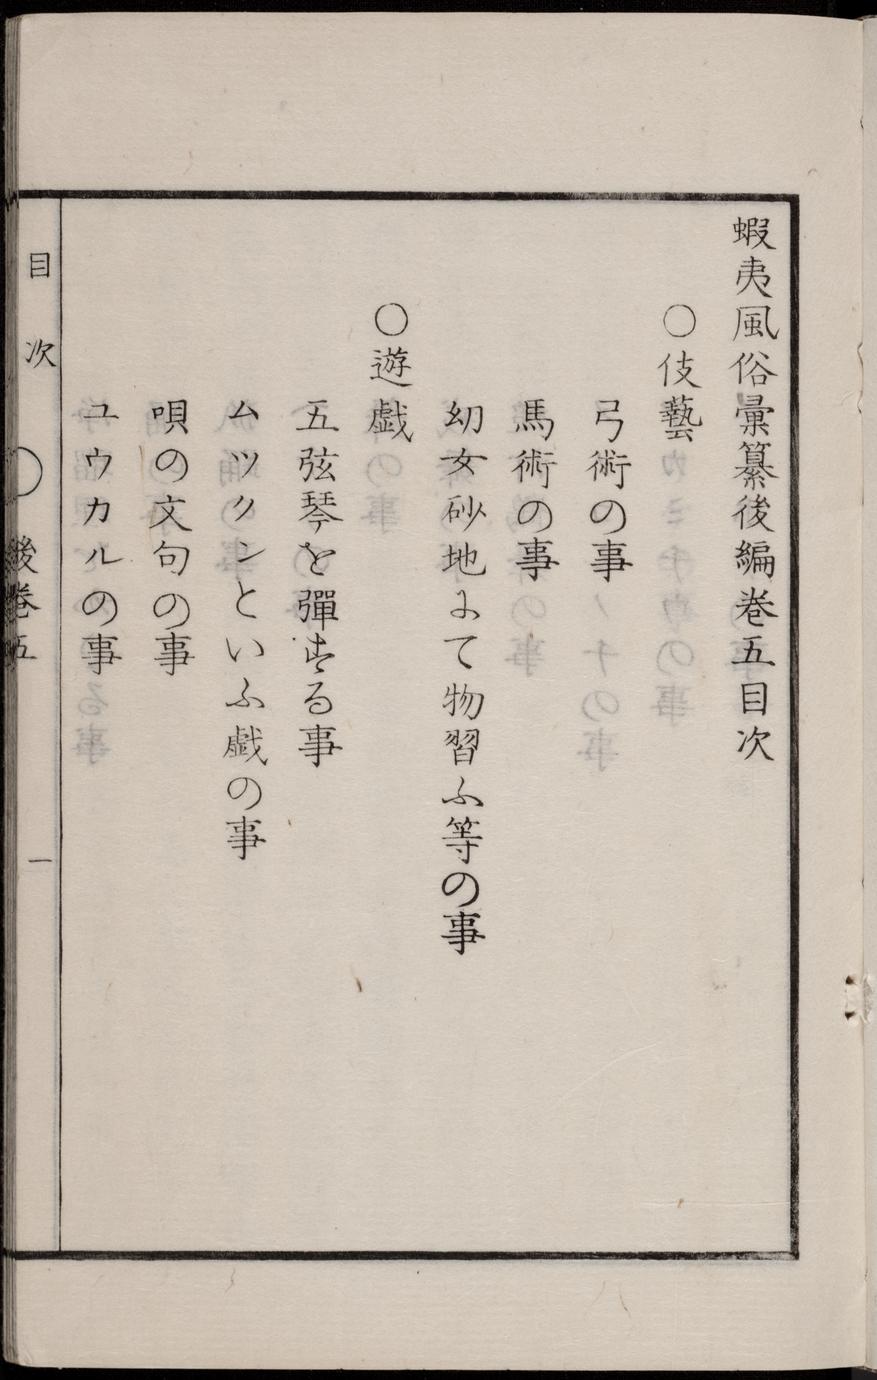 蝦夷風俗彙纂後編巻五目次
〇伎藝
弓術の事
馬術の事
幼女砂地にて物習ふ等の事
〇遊戯
五弦琴を彈ずる事
ムツクンといふ戯の事
唄の文句の事
ユウカルの事
目次 〇 後巻五 一